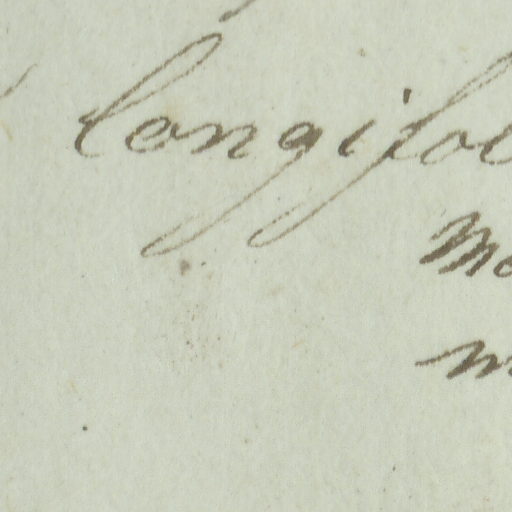 longifo
Mo
m